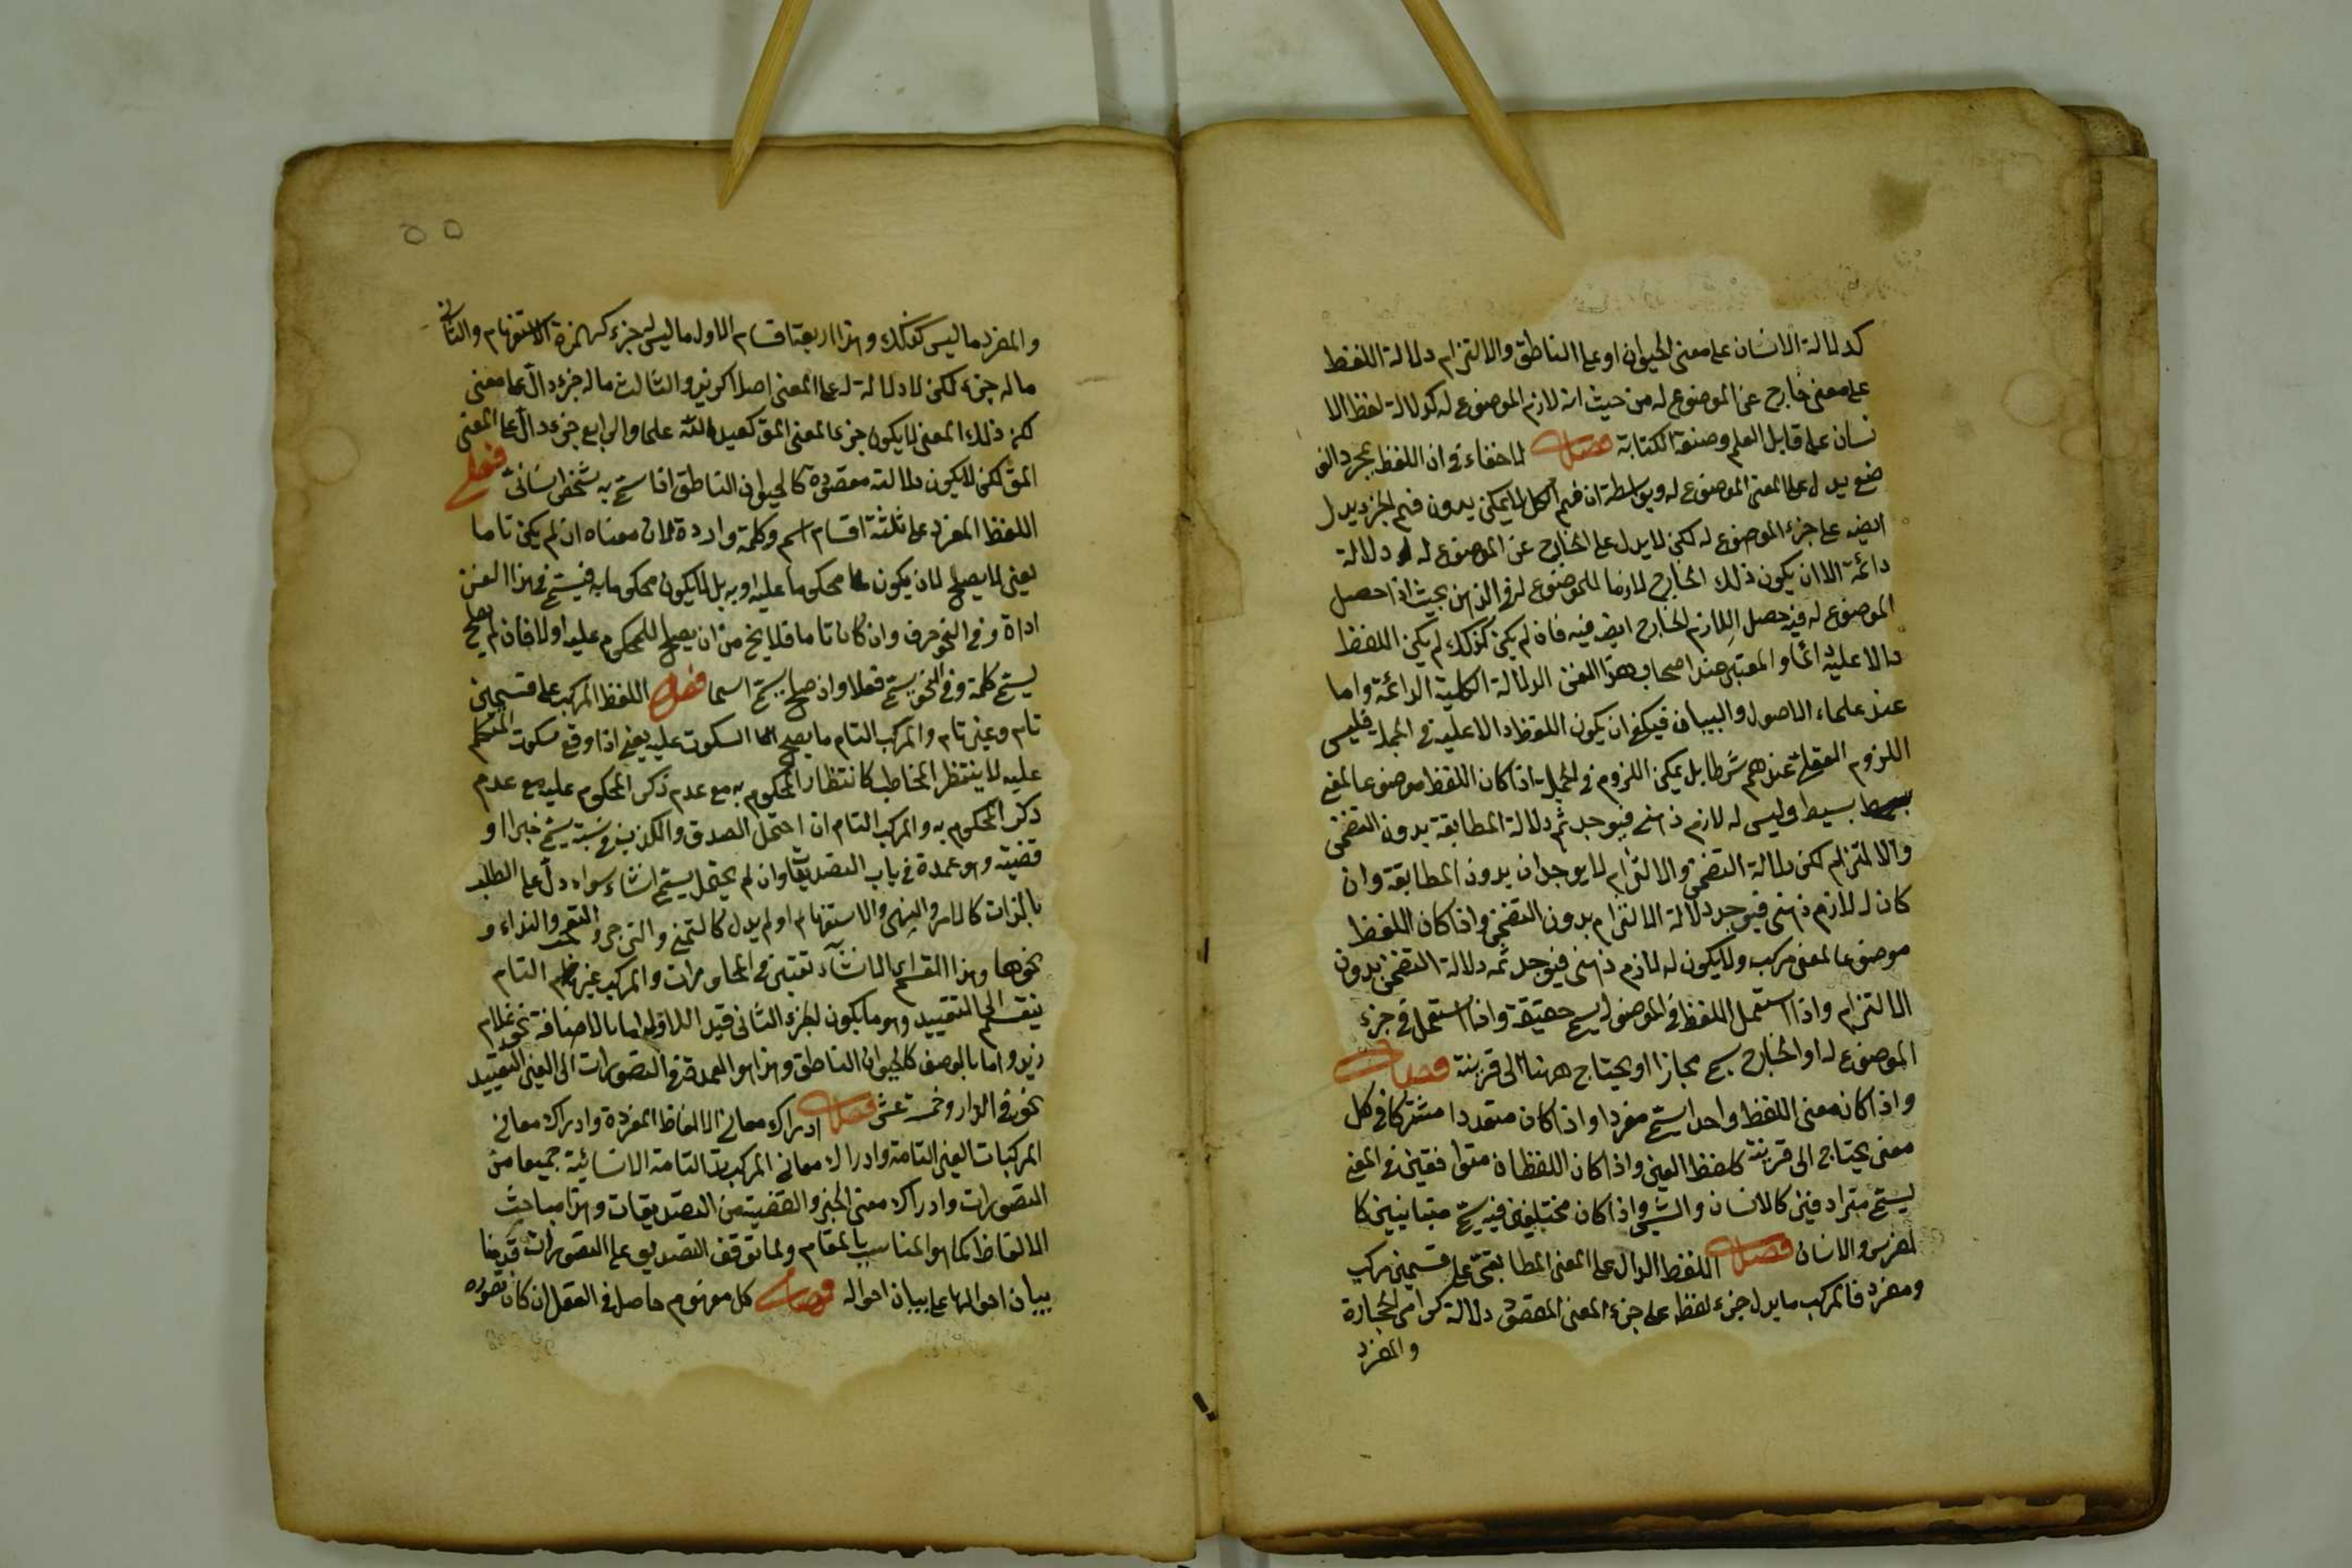 كدلالة الانسان على معنى الحيوان او على الناطق والالتزام دلالة اللفظ
على معنى خارج عن الموضوع له من حيث انه لازم الموضوع له كدلالة لفظ الا
نسان على قابل العلم وصنعة الكتابة فصل لا خفاء في ان اللفظ بمجرد الو
ضع يدل على المعنى الموضوع له وبواسطة ان فهم الكل لا يمكن بدون فهم الجزء يدل
ايضه على جزء الموضوع له لكن لا يدل على الخارج عن الموضوع له دلالة
دائمة الا ان يكون ذلك الخارج لازما للموضوع له في الذهن بحيث اذا حصل
الموضوع له فيه حصل اللازم الخارج ايضه فيه فان لم يكن كذلك لم يكن اللفظ
دالا عليه دائما والمعتبر عند اصحاب هذا الفن الدلالة الكلية الدائمة واما
عند علماء الاصول والبيان فيكفي ان يكون اللفظ دالا عليه في الجملة فليس
اللزوم العقلي عندهم شرطا بل يمكن اللزوم في الجملة اذا كان اللفظ موضوعا لمعنى
بسيط وليس له لازم ذهني فيوجد ثم دلالة المطابقة بدون التضمن
والالتزام لكن دلالة التضمن والالتزام لا يوجدان بدون المطابقة وان
كان له لازم ذهني فيوجد دلالة الالتزام بدون التضمن واذا كان اللفظ
موضوعا لمعنى مركب ولا يكون له لازم ذهني فيوجد ثمه دلالة التضمن بدون
الالتزام واذا استعمل اللفظ في الموضوع له يسمى حقيقة واذا استعمل في جزء
الموضوع له او الخارج يسمى مجازا او يحتاج ههنا الى قرينة فصل
واذا كان معنى اللفظ واحدا يسمى مفردا واذا كان متعددا مشتركا في كل
معنى يحتاج الى قرينة كلفظ العين واذا كان اللفظان متوافقين في المعنى
يسمى مترادفين كالانسان والبشر واذا كان مختلفين فيه يسمى متباينين كا
لفرس والانسان فصل اللفظ الدال على المعنى المطابقي على قسمين مركب
ومفرد فالمركب ما يدل جزء لفظه على جزء المعنى المقصود دلالة كرامي الحجارة
والمفرد
٥٥
والمفرد ما ليس كذلك وهذا اربعة اقسام الاول ما ليس له جزء كهمزة الاستفهام والثاني
ما له جزء لكن لا دلالة له على المعنى اصلا كزيد والثالث ما له جزء دال على معنى
لكن ذلك المعنى لا يكون جزء المعنى المق كعبد الله علما والرابع جزءه دال على المعنى
المق لكن لا يكون دلالته مقصودة كالحيوان الناطق اذا سمي به شخص انساني فصل
اللفظ المفرد على ثلثة اقسام اسم وكلمة واداة لان معناه ان لم يكن تاما
يعني لا يصلح لان يكون محكوما عليه او به بل لا يكون محكوما به فيسمى في هذا الفن
اداة وفي النحو حرف وان كان تاما فلا يخ من ان يصلح للمحكوم عليه اولا فان لم يصلح
يسمى كلمة وفي النحو يسمى فعلا وان صلح يسمى اسما فصل اللفظ المركب على قسمين
تام وغير تام والمركب التام ما يصح السكوت عليه يعني اذا وقع سكوت المتكلم
عليه لا ينتظر المخاطب كانتظار المحكوم به مع عدم ذكر المحكوم عليه مع عدم
ذكر المحكوم به والمركب التام ان احتمل الصدق والكذب في نسبته يسمى خبرا او
قضية وهو عمدة في باب التصديقات وان لم يحتمل يسمى انشاء سواء دل على الطلب
بالذات كالامر والنهي والاستفهام او لم يدل كالتمني والترجي والتعجب والنداء و
نحوها وهذا القسم الانشاء تعتبر في المحاورات والمركب غير التام
ينقسم الى التقييد وهو ما يكون الجزء الثاني قيد الاول اما بالاضافة نحو غلام
زيد واما بالوصف كالحيوان الناطق وهذا هو العمدة في التصورات الى الغير التقييد
نحو في الدار وخمسة عشر فصل ادراك معاني الالفاظ المفردة وادراك معاني
المركبات الغير التامة وادراك معاني المركبات التامة الانشائية جميعا من
التصورات وادراك معنى الخبر والقضية من التصديقات وهذا مباحث
الالفاظ كما هو المناسب بالمقام ولما توقف التصديق على التصورات قدمنا
بيان احوالها على بيان احواله فصل كل مفهوم حاصل في العقل ان كان تصوره